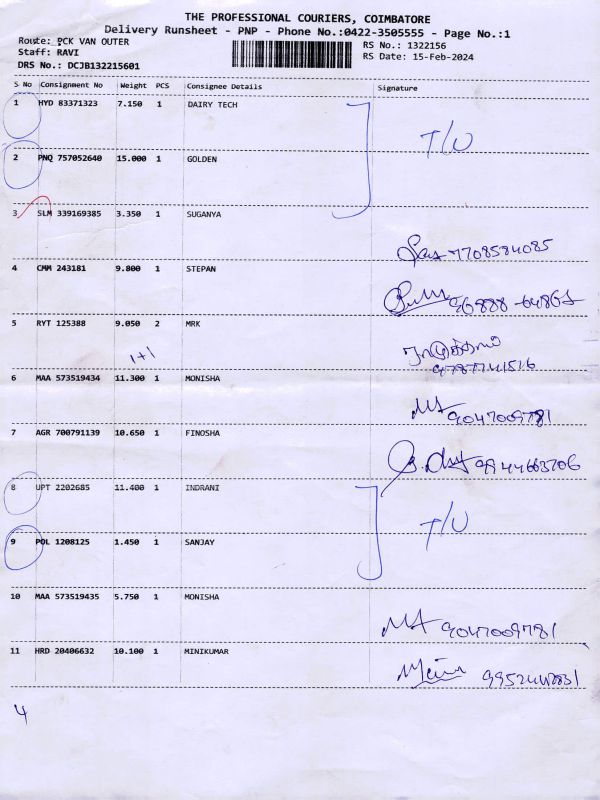 THE PROFESSIONAL COURIERS, COIMBATORE
Delivery Runsheet - PNP - Phone No.:0422-3505555 - Page No.:1
Route: PCK VAN OUTER
RS No.: 1322156
Staff: RAVI
RS Date: 15-Feb-2024
DRS No.: DCJB132215601
S No Consignment No Weight PCS Consignee Details Signature
1 HYD 83371323 7.150 1 DAIRY TECH
T/U
2 PNQ 757052640 15.000 1 GOLDEN
3 SLM 339169385 3.350 1 SUGANYA
7708584085
4 CMM 243181 9.800 1 STEPAN
5 RYT 125388 9.050 2 MRK
1+1
6 MAA 573519434 11.300 1 MONISHA
9047009781
7 AGR 700791139 10.650 1 FINOSHA
9944663706
8 UPT 2202685 11.400 1 INDRANI
T/U
9 POL 1208125 1.450 1 SANJAY
10 MAA 573519435 5.750 1 MONISHA
9047009781
11 HRD 20406632 10.100 1 MINIKUMAR
4